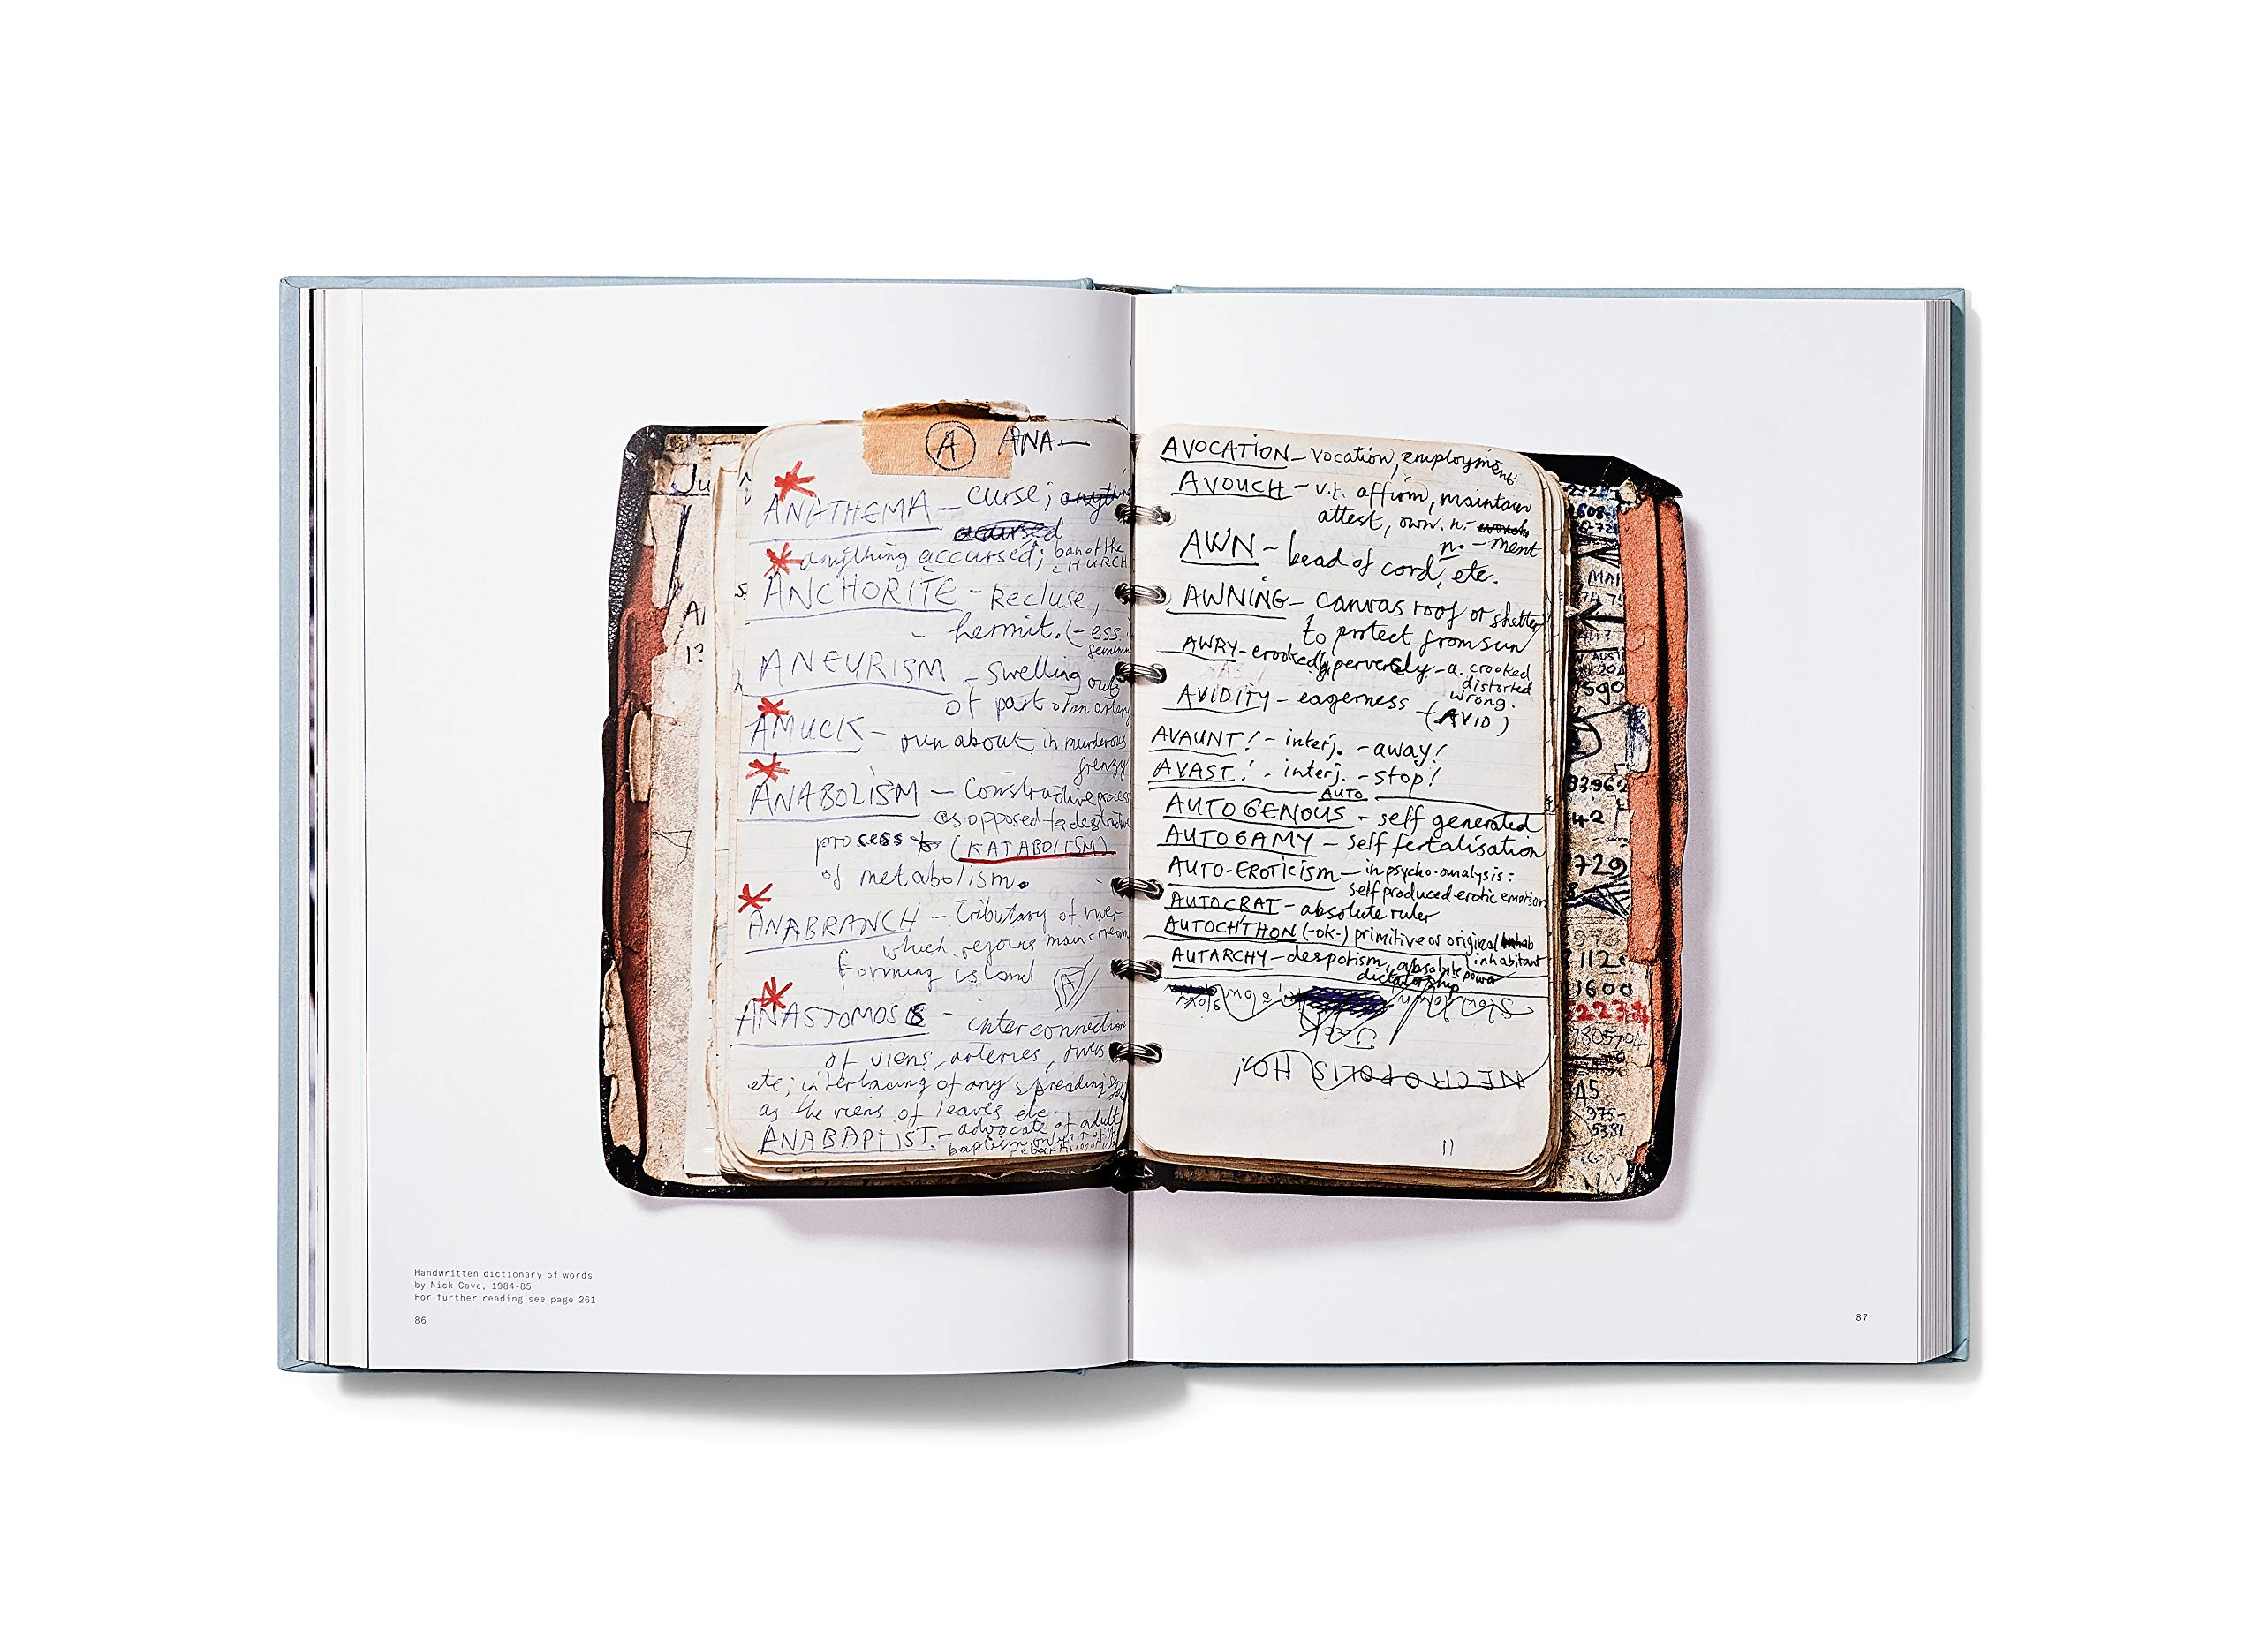 A ANA—
ANATHEMA — curse; anything
accursed
anything accursed; ban of the
CHURCH
ANCHORITE - Recluse,
- hermit. (-ess.
feminin
ANEURISM - swelling out
of part of an artery
AMUCK - run about in murderous
frenzy
ANABOLISM — Constructive process
as opposed to destructive
process to (KATABOLISM)
of metabolism.
ANABRANCH - Tributary of river
which rejoins mainstream
forming island A
ANASTOMOSE - interconnection
of viens, arteries, rivers
etc; interlacing of any spreading
as the viens of leaves etc
ANABAPTIST. - advocate of adult
baptism only
AVOCATION - vocation, employment
AVOUCH - v.t. affirm, maintain
attest, own. n. -
n. - ment
AWN - bead of cord, etc.
AWNING - canvas roof or shelter
to protect from sun
AWRY - crookedly, perversely - a. crooked
distorted
wrong.
AVIDITY - eagerness - (AVID)
AVAUNT! - interj. - away!
AVAST! - interj. - stop!
AUTO
AUTOGENOUS - self generated
AUTOGAMY - self fertalisation
AUTO-EROTICISM - in psycho-analysis:
self produced erotic emotion
AUTOCRAT - absolute ruler
AUTOCHTHON (-ok-) primitive or original inhab
inhabitant
AUTARCHY - despotism, absolute power
dictatorship
NECROPOLIS HO!
11
Ju
93962
42
729
1120
11600
9805704
345
975-
5381
Handwritten dictionary of words
by Nick Cave, 1984-85
For further reading see page 261
86
87